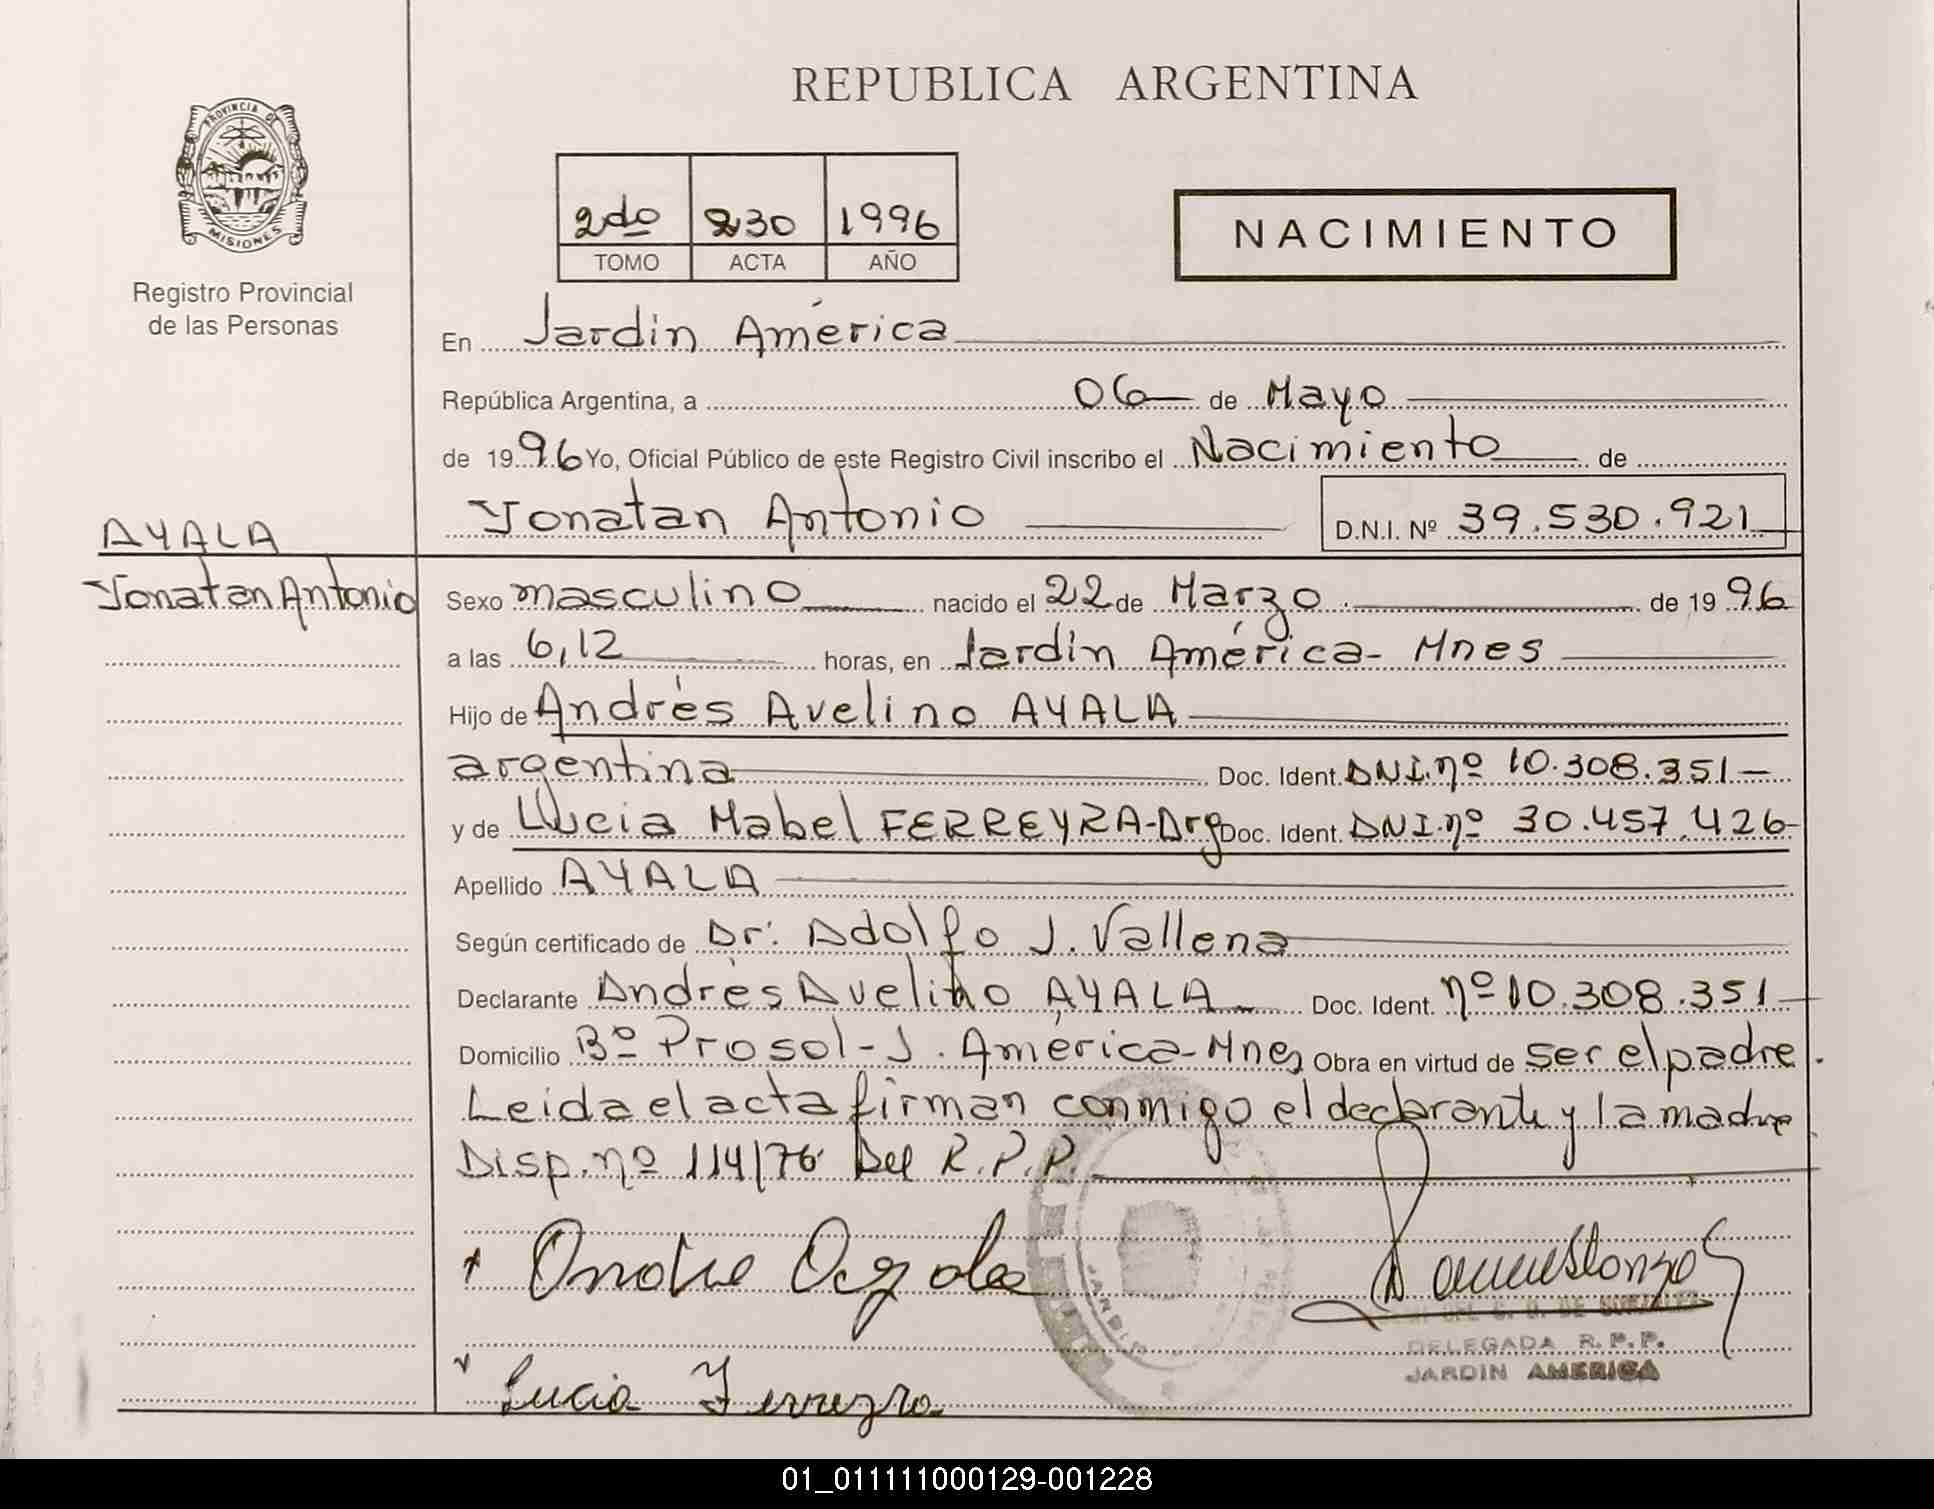 REPUBLICA ARGENTINA
PROVINCIA DE
MISIONES
Registro Provincial
de las Personas
2do 230 1996
TOMO ACTA AÑO
NACIMIENTO
En Jardín América
República Argentina, a 06 de Mayo
de 1996 Yo, Oficial Público de este Registro Civil inscribo el Nacimiento de
Yonatan Antonio D.N.I. Nº 39.530.921
AYALA
Yonatan Antonio
Sexo masculino nacido el 22 de Marzo de 1996
a las 6,12 horas, en Jardín América - Mnes
Hijo de Andrés Avelino AYALA
argentina Doc. Ident. DNI. nº 10.308.351
y de Lucia Mabel FERREYRA - Arg Doc. Ident. DNI. nº 30.457.426
Apellido AYALA
Según certificado de Dr: Adolfo J. Vallena
Declarante Andrés Avelino AYALA Doc. Ident. nº 10.308.351
Domicilio Bº Prosol - J. América - Mnes Obra en virtud de ser el padre.
Leida el acta firman conmigo el declarante y la madre
Disp. nº 114/76 Del R.P.P.
DELEGADA R.P.P.
JARDIN AMERICA
Lucia Ferreyra
01_011111000129-001228